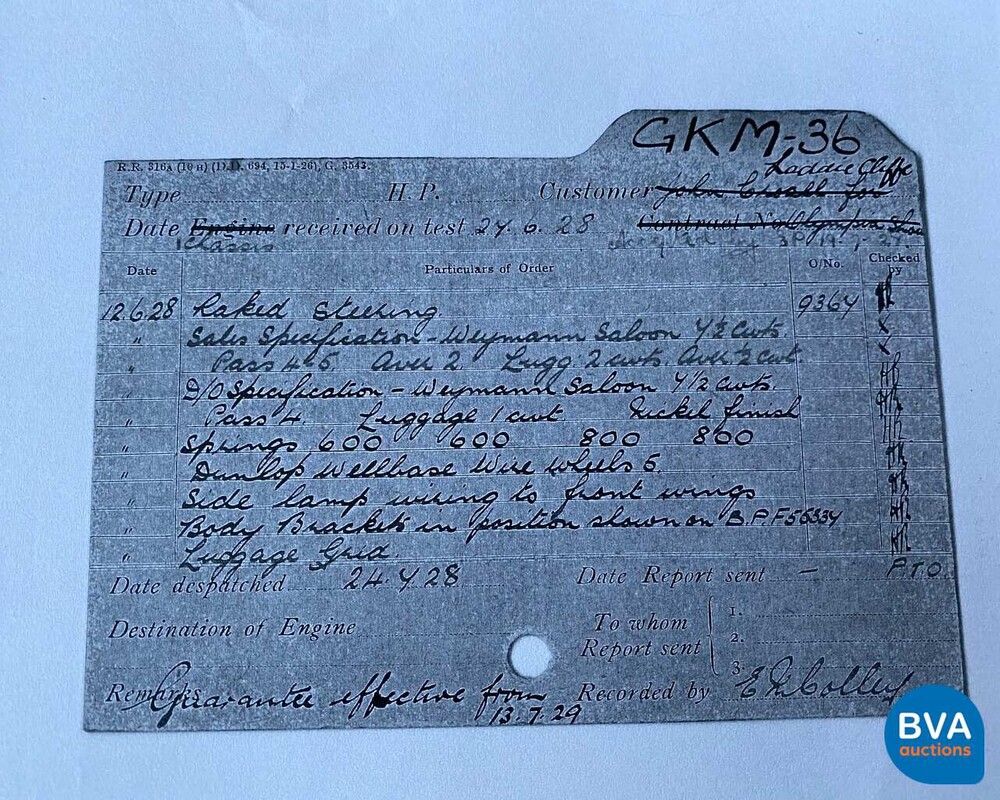 GKM-36
R.R. 316A (10 H) (D.D. 694, 15-1-26), G. 3543.
Laddie Cliff
Type H.P. Customer John for
Date Engine received on test 27. 6. 28 Contract No Olympia Show
Chassis
Date Particulars of Order O/No. Checked by
12.6.28 Raked Steering 9364
" Sales Specification - Weymann Saloon 7½ cwts
" Pass 4-5 Aver 2. Lugg. 2 cwts. Aver ½ cwt.
" D/O Specification - Weymann Saloon 7 1/2 cwts.
" Pass 4. Luggage 1 cwt Nickel finish
" Springs 600 600 800 800
" Dunlop Wellbase Wire Wheels 5.
" Side lamp wiring to front wings
" Body Brackets in position shown on B.P.F55334
" Luggage Grid. P.T.O.
Date despatched 24. 7. 28 Date Report sent -
Destination of Engine To whom Report sent 1. 2. 3.
Remarks Guarantee effective from 13.7.29 Recorded by
BVA
auctions